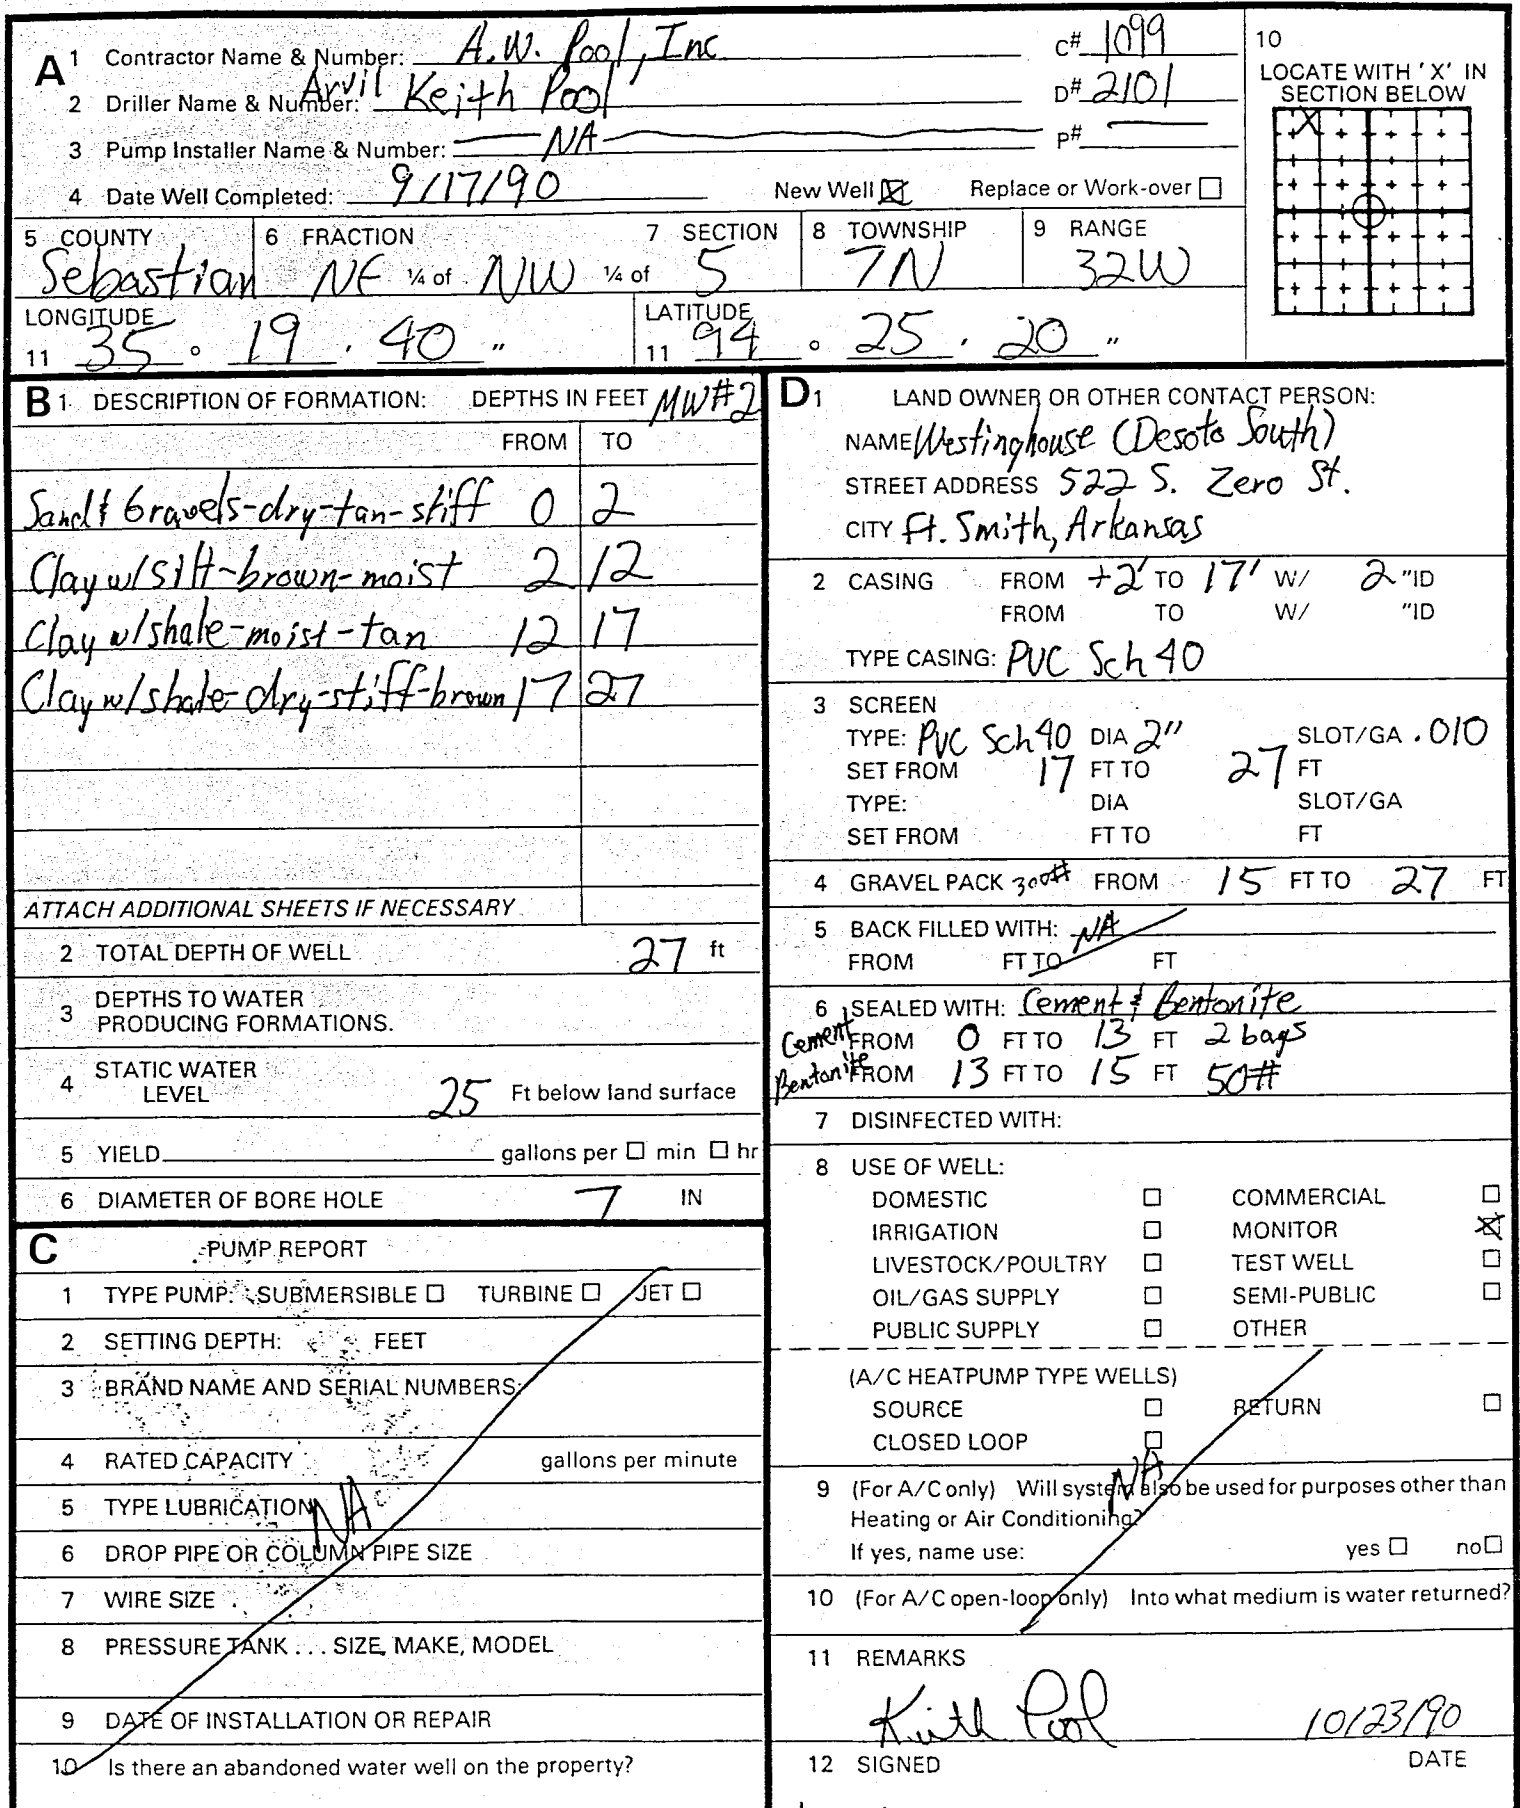 A 1 Contractor Name & Number: A.W. Pool, Inc C# 1099
2 Driller Name & Number: Arvil Keith Pool D# 2101
3 Pump Installer Name & Number: NA P#
4 Date Well Completed: 9/17/90 New Well ☒ Replace or Work-over ☐
10
LOCATE WITH 'X' IN
SECTION BELOW
X
5 COUNTY 6 FRACTION 7 SECTION 8 TOWNSHIP 9 RANGE
Sebastian NE ¼ of NW ¼ of 5 7N 32W
LONGITUDE LATITUDE
11 35 ° 19 ' 40 " 11 94 ° 25 ' 20 "
B 1 DESCRIPTION OF FORMATION: DEPTHS IN FEET MW#2
FROM TO
Sand & Gravels-dry-tan-stiff 0 2
Clay w/silt-brown-moist 2 12
Clay w/shale-moist-tan 12 17
Clay w/shale-dry-stiff-brown 17 27
ATTACH ADDITIONAL SHEETS IF NECESSARY
2 TOTAL DEPTH OF WELL 27 ft
3 DEPTHS TO WATER
PRODUCING FORMATIONS.
4 STATIC WATER
LEVEL 25 Ft below land surface
5 YIELD gallons per ☐ min ☐ hr
6 DIAMETER OF BORE HOLE 7 IN
C PUMP REPORT
1 TYPE PUMP: SUBMERSIBLE ☐ TURBINE ☐ JET ☐
2 SETTING DEPTH: FEET
3 BRAND NAME AND SERIAL NUMBERS:
4 RATED CAPACITY gallons per minute
5 TYPE LUBRICATION NA
6 DROP PIPE OR COLUMN PIPE SIZE
7 WIRE SIZE
8 PRESSURE TANK ... SIZE, MAKE, MODEL
9 DATE OF INSTALLATION OR REPAIR
10 Is there an abandoned water well on the property?
D 1 LAND OWNER OR OTHER CONTACT PERSON:
NAME Westinghouse (Desoto South)
STREET ADDRESS 522 S. Zero St.
CITY Ft. Smith, Arkansas
2 CASING FROM +2' TO 17' W/ 2 "ID
FROM TO W/ "ID
TYPE CASING: PVC Sch 40
3 SCREEN
TYPE: PVC Sch 40 DIA 2" SLOT/GA .010
SET FROM 17 FT TO 27 FT
TYPE: DIA SLOT/GA
SET FROM FT TO FT
4 GRAVEL PACK 300# FROM 15 FT TO 27 FT
5 BACK FILLED WITH: NA
FROM FT TO FT
6 SEALED WITH: Cement & Bentonite
Cement FROM 0 FT TO 13 FT 2 bags
Bentonite FROM 13 FT TO 15 FT 50#
7 DISINFECTED WITH:
8 USE OF WELL:
DOMESTIC ☐ COMMERCIAL ☐
IRRIGATION ☐ MONITOR ☒
LIVESTOCK/POULTRY ☐ TEST WELL ☐
OIL/GAS SUPPLY ☐ SEMI-PUBLIC ☐
PUBLIC SUPPLY ☐ OTHER
(A/C HEATPUMP TYPE WELLS)
SOURCE ☐ RETURN ☐
CLOSED LOOP ☐
NA
9 (For A/C only) Will system also be used for purposes other than
Heating or Air Conditioning?
If yes, name use: yes ☐ no ☐
10 (For A/C open-loop only) Into what medium is water returned?
11 REMARKS
Keith Pool 10/23/90
12 SIGNED DATE